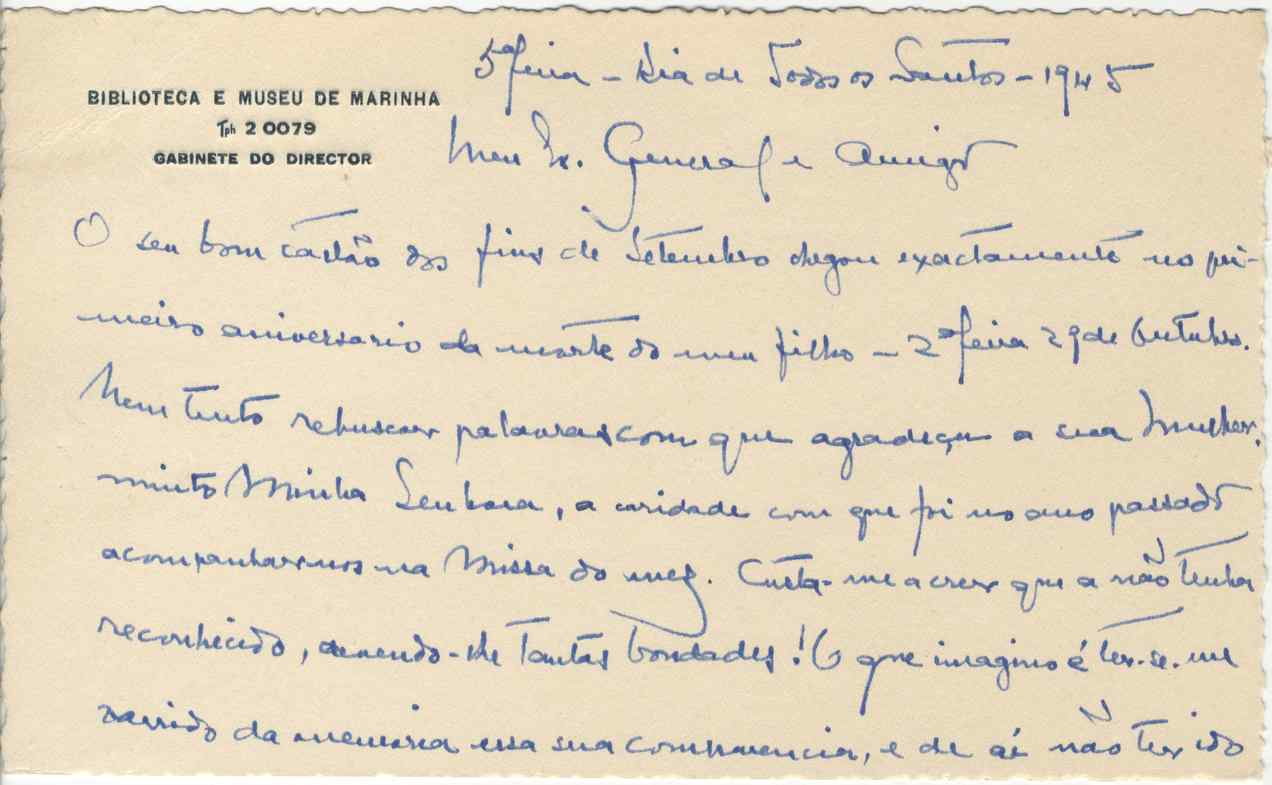 BIBLIOTECA E MUSEU DE MARINHA
Tph 2 0079
GABINETE DO DIRECTOR
5ª feira - Dia de Todos os Santos - 1945
Meu Ex. General e Amigo
O seu bom cartão dos fins de Setembro chegou exactamente no pri-
meiro aniversario da morte do meu filho - 2ª feira 29 de Outubro.
Nem tento rebuscar palavras com que agradeça a sua Mulher,
muito Minha Senhora, a caridade com que foi no ano passado
acompanhar-nos na Missa do mez. Custa-me a crer que a não tenha
reconhecido, devendo-lhe tantas bondades! O que imagino é ter-se-me
varrido da memoria essa sua comparencia, e de aí não ter ido